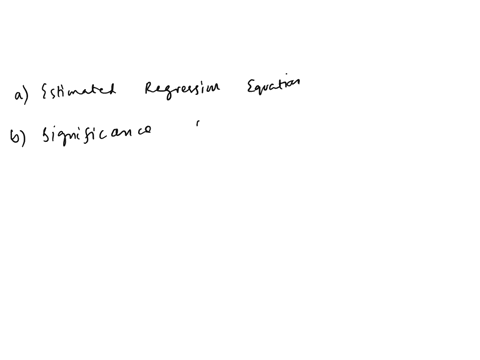 a) Estimated Regression Equation
b) Significance